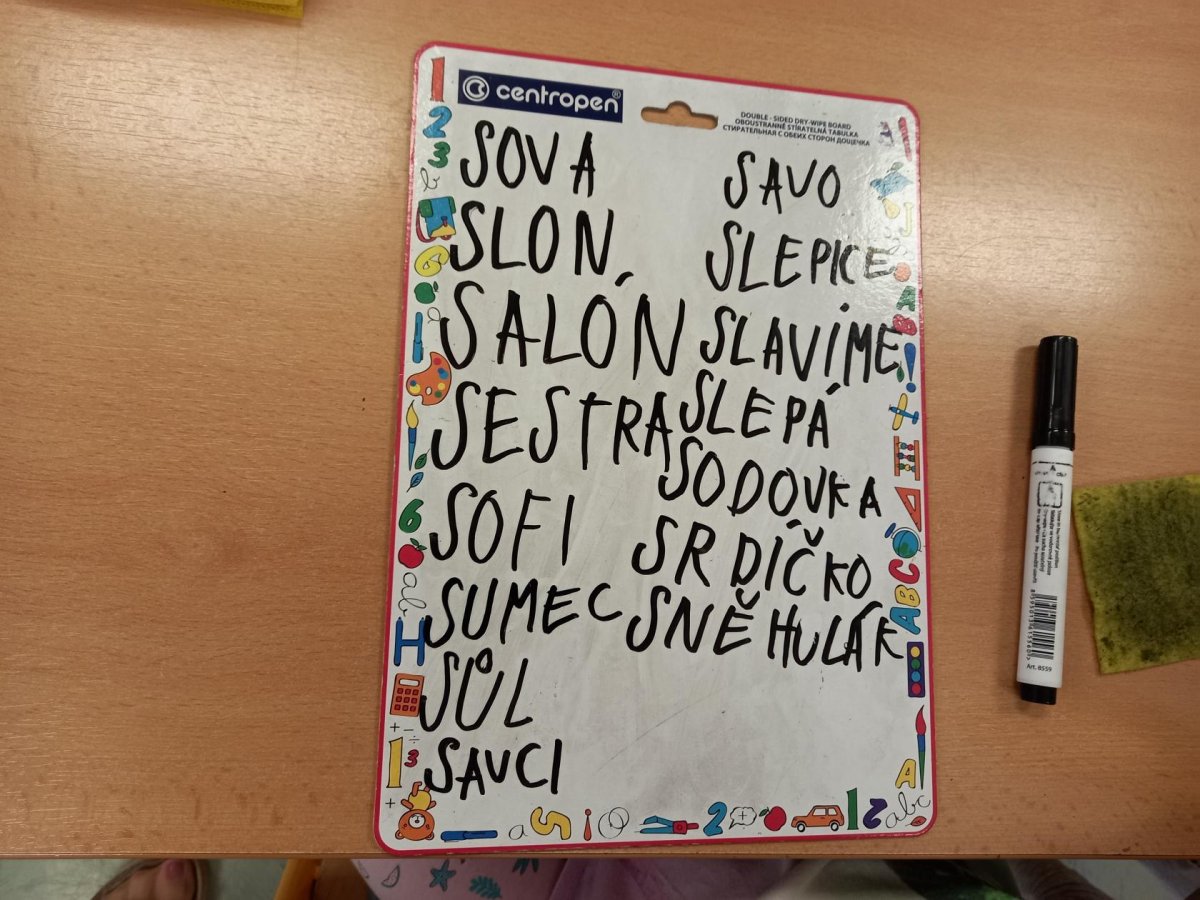 centropen®
DOUBLE - SIDED DRY-WIPE BOARD
OBOUSTRANNĚ STÍRATELNÁ TABULKA
СТИРАТЕЛЬНАЯ С ОБЕИХ СТОРОН ДОЩЕЧКА
SOVA
SLON
SALÓN
SESTRA
SOFI
SUMEC
SŮL
SAVCI
SAVO
SLEPICE
SLAVÍME
SLEPÁ
SODOVKA
SRDÍČKO
SNĚHULÁK
Art. 8559